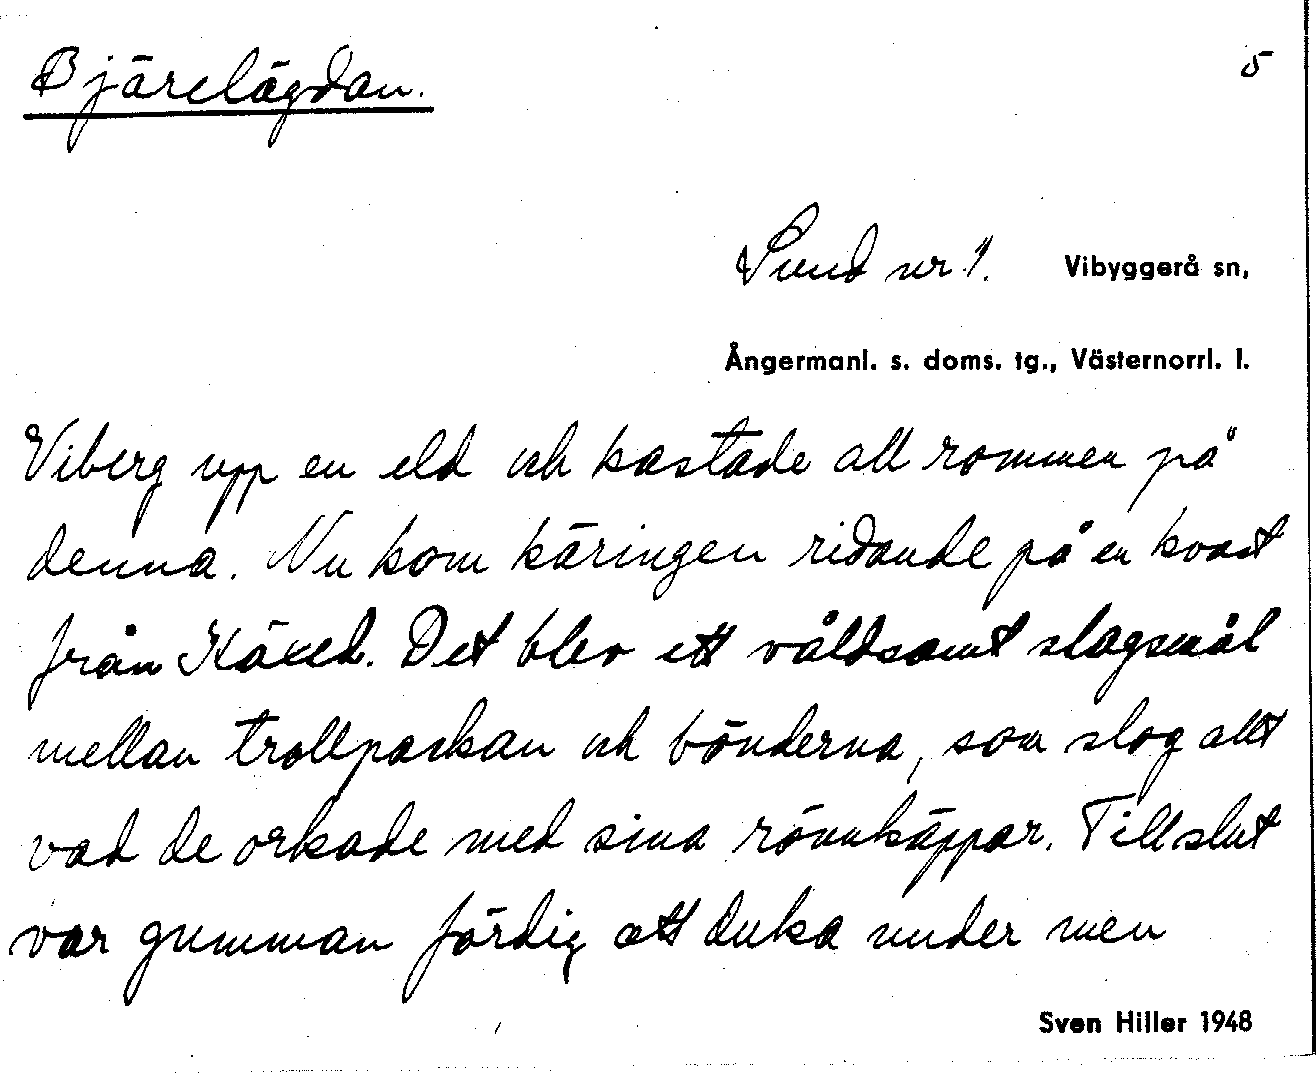 Bjärelägdan.
5
Sund nr 1. Vibyggerå sn,
Ångermanl. s. doms. tg., Västernorrl. l.
Viberg upp en eld och kastade all rommen på
denna. Nu kom käringen ridande på en kvast
från Käxed. Det blev ett våldsamt slagsmål
mellan trollpackan och bönderna, som slog allt
vad de orkade med sina rönnkäppar. Till slut
var gumman färdig att duka under men
Sven Hiller 1948